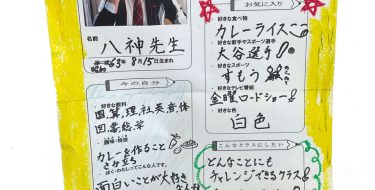 名前
八神先生
昭和63年8月15日生まれ
今の自分
・好きな教科
国、算、理、社、英、音、体
図、書、総、学
・趣味・特技
カレーを作ること
さか立ち
・ぼく・わたしってこんな人です。
面白いことが大好き
お気に入り
・好きな食べ物
カレーライス
・好きな歌手やスポーツ選手
大谷選手
・好きなスポーツ
すもう
・好きなテレビ番組
金曜ロードショー
・好きな色
白色
こんなクラスにしたい
どんなことにも
チャレンジできるクラス!